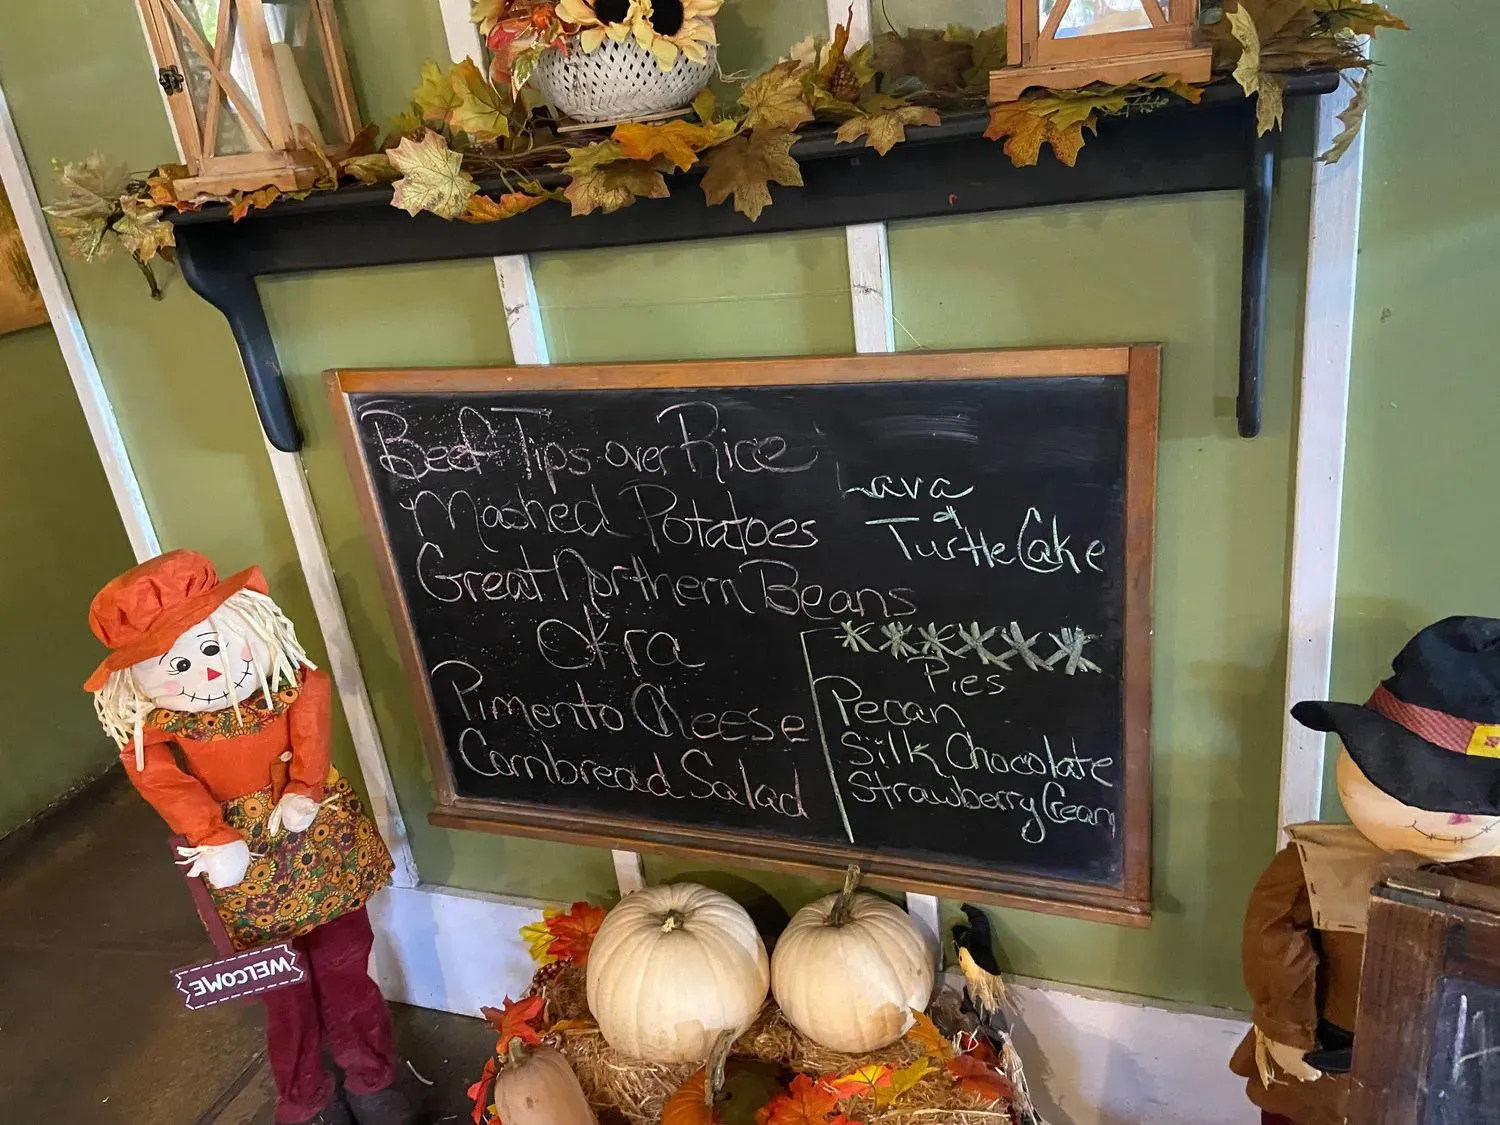 Beef Tips over Rice
Mashed Potatoes
Great Northern Beans
Okra
Pimento Cheese
Cornbread Salad
Lava
&
Turtle Cake
Pies
Pecan
Silk Chocolate
Strawberry Cream
WELCOME